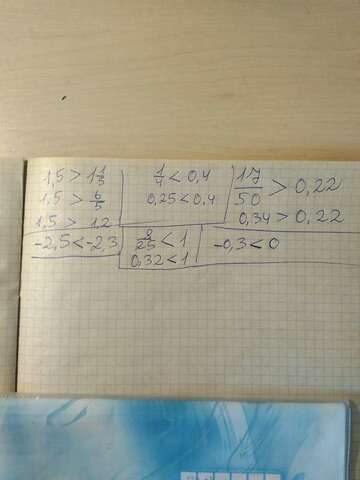 1,5 > 1 1/5
1,5 > 6/5
1,5 > 1,2
1/4 < 0,4
0,25 < 0,4
17/50 > 0,22
0,34 > 0,22
-2,5 < -2,3
8/25 < 1
0,32 < 1
-0,3 < 0